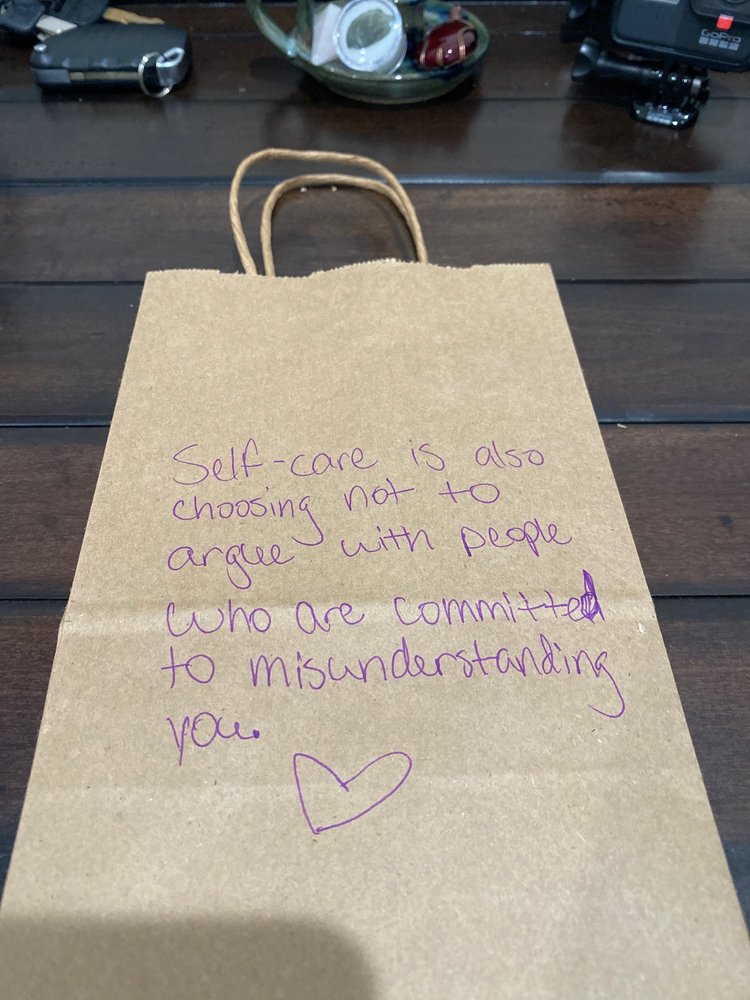 GoPro
Self-care is also
choosing not to
argue with people
who are committed
to misunderstanding
you.